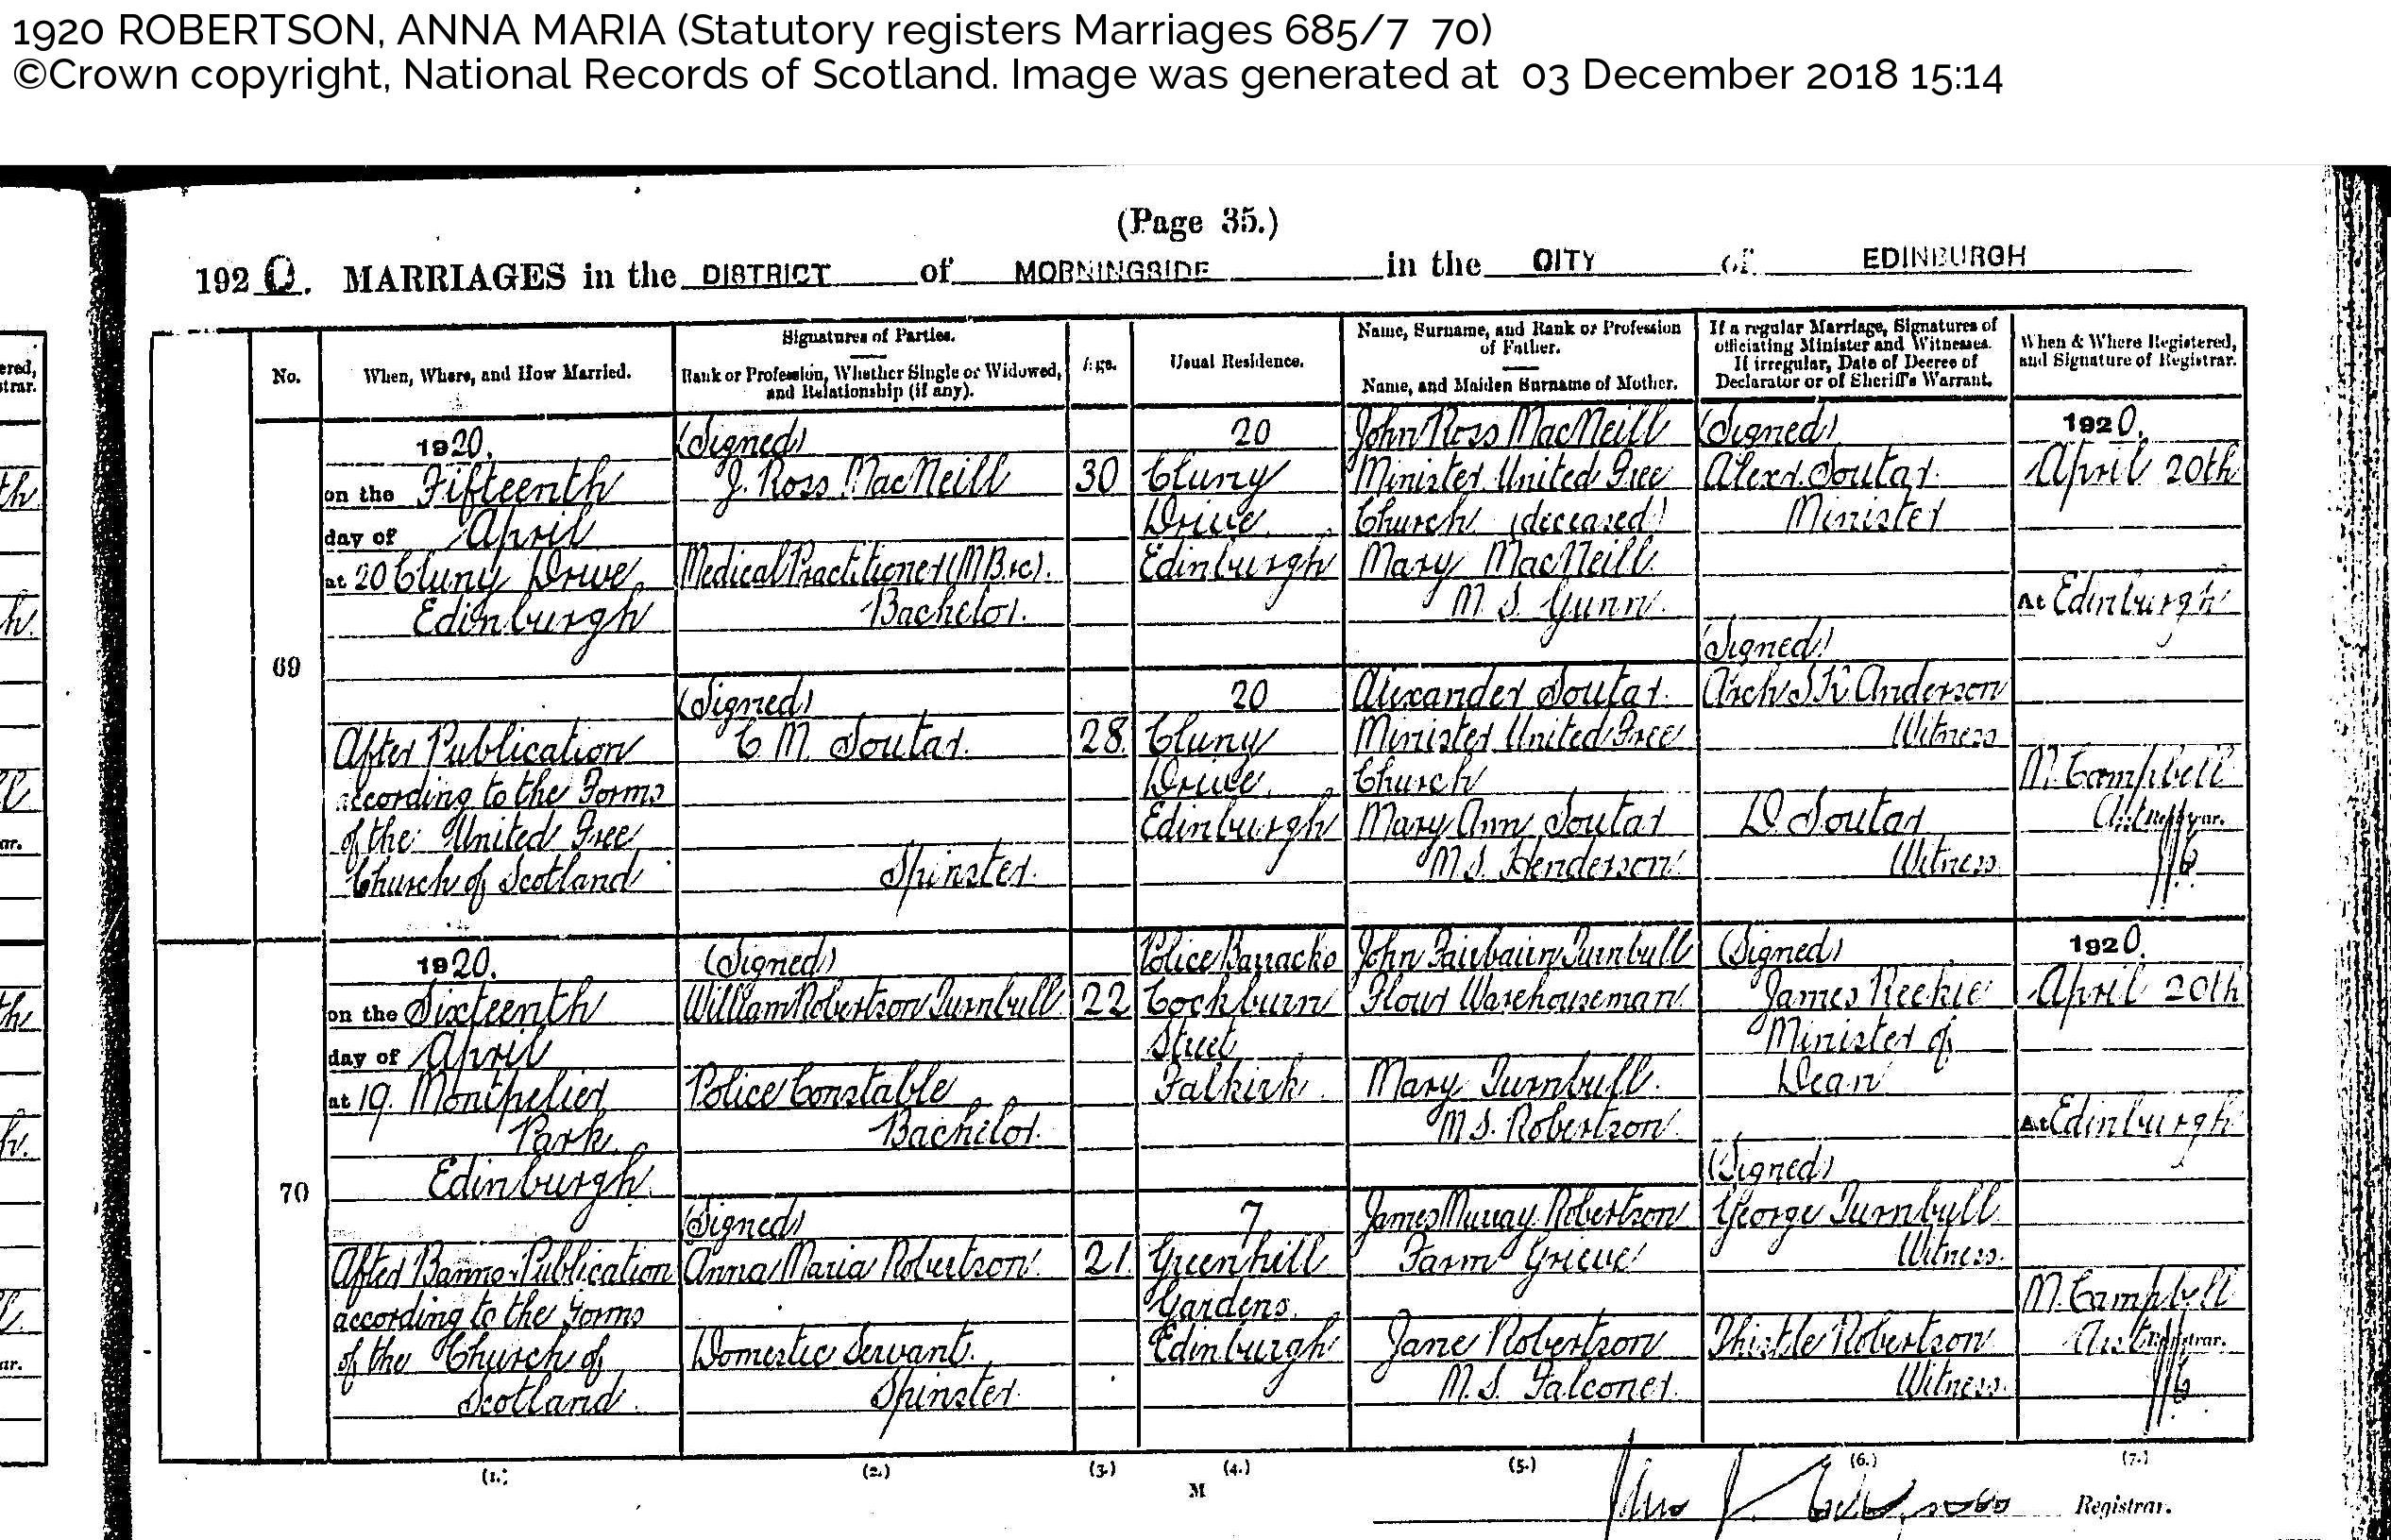 1920 ROBERTSON, ANNA MARIA (Statutory registers Marriages 685/7 70)
©Crown copyright, National Records of Scotland. Image was generated at 03 December 2018 15:14
(Page 35.)
1920. MARRIAGES in the DISTRICT of MORNINGSIDE in the CITY of EDINBURGH
No.
When, Where, and How Married.
Signatures of Parties.
Rank or Profession, Whether Single or Widowed,
and Relationship (if any).
Age.
Usual Residence.
Name, Surname, and Rank or Profession
of Father.
Name, and Maiden Surname of Mother.
If a regular Marriage, Signatures of
officiating Minister and Witnesses.
If irregular, Date of Decree of
Declarator or of Sheriff's Warrant.
When & Where Registered,
and Signature of Registrar.
69
1920.
on the Fifteenth
day of April
at 20 Cluny Drive
Edinburgh
After Publication
according to the Forms
of the United Free
Church of Scotland
(Signed)
J. Ross MacNeill
Medical Practitioner (M.B. &c).
Bachelor.
(Signed)
C M. Soutar.
Spinster.
30
28.
20
Cluny
Drive,
Edinburgh
20
Cluny
Drive,
Edinburgh
John Ross MacNeill
Minister United Free
Church (deceased)
Mary MacNeill
M. S. Gunn.
Alexander Soutar.
Minister United Free
Church
Mary Ann Soutar
M.S. Henderson.
(Signed)
Alexr. Soutar.
Minister
(Signed)
Anderson
Witness
D Soutar
Witness.
1920.
April 20th
At Edinburgh
M. Campbell
Asst Registrar.
70
1920.
on the Sixteenth
day of April
at 19. Montpelier
Park,
Edinburgh.
After Banns & Publication
according to the Forms
of the Church of
Scotland.
(Signed)
William Robertson Turnbull
Police Constable
Bachelor.
(Signed)
Anna Maria Robertson.
Domestic Servant.
Spinster.
22
21.
Police Barracks
Cockburn
Street
Falkirk.
7
Greenhill
Gardens.
Edinburgh
John Fairbairn Turnbull
Flour Warehouseman.
Mary Turnbull.
M.S. Robertson.
James Murray Robertson
Farm Grieve
Jane Robertson
M.S. Falconer.
(Signed)
James Reekie
Minister of
Dean
(Signed)
George Turnbull
Witness.
Thistle Robertson
Witness.
1920.
April 20th
At Edinburgh
M. Campbell
Asst Registrar.
(1.) (2.) (3.) (4.) (5.) (6.) (7.)
M
Registrar.